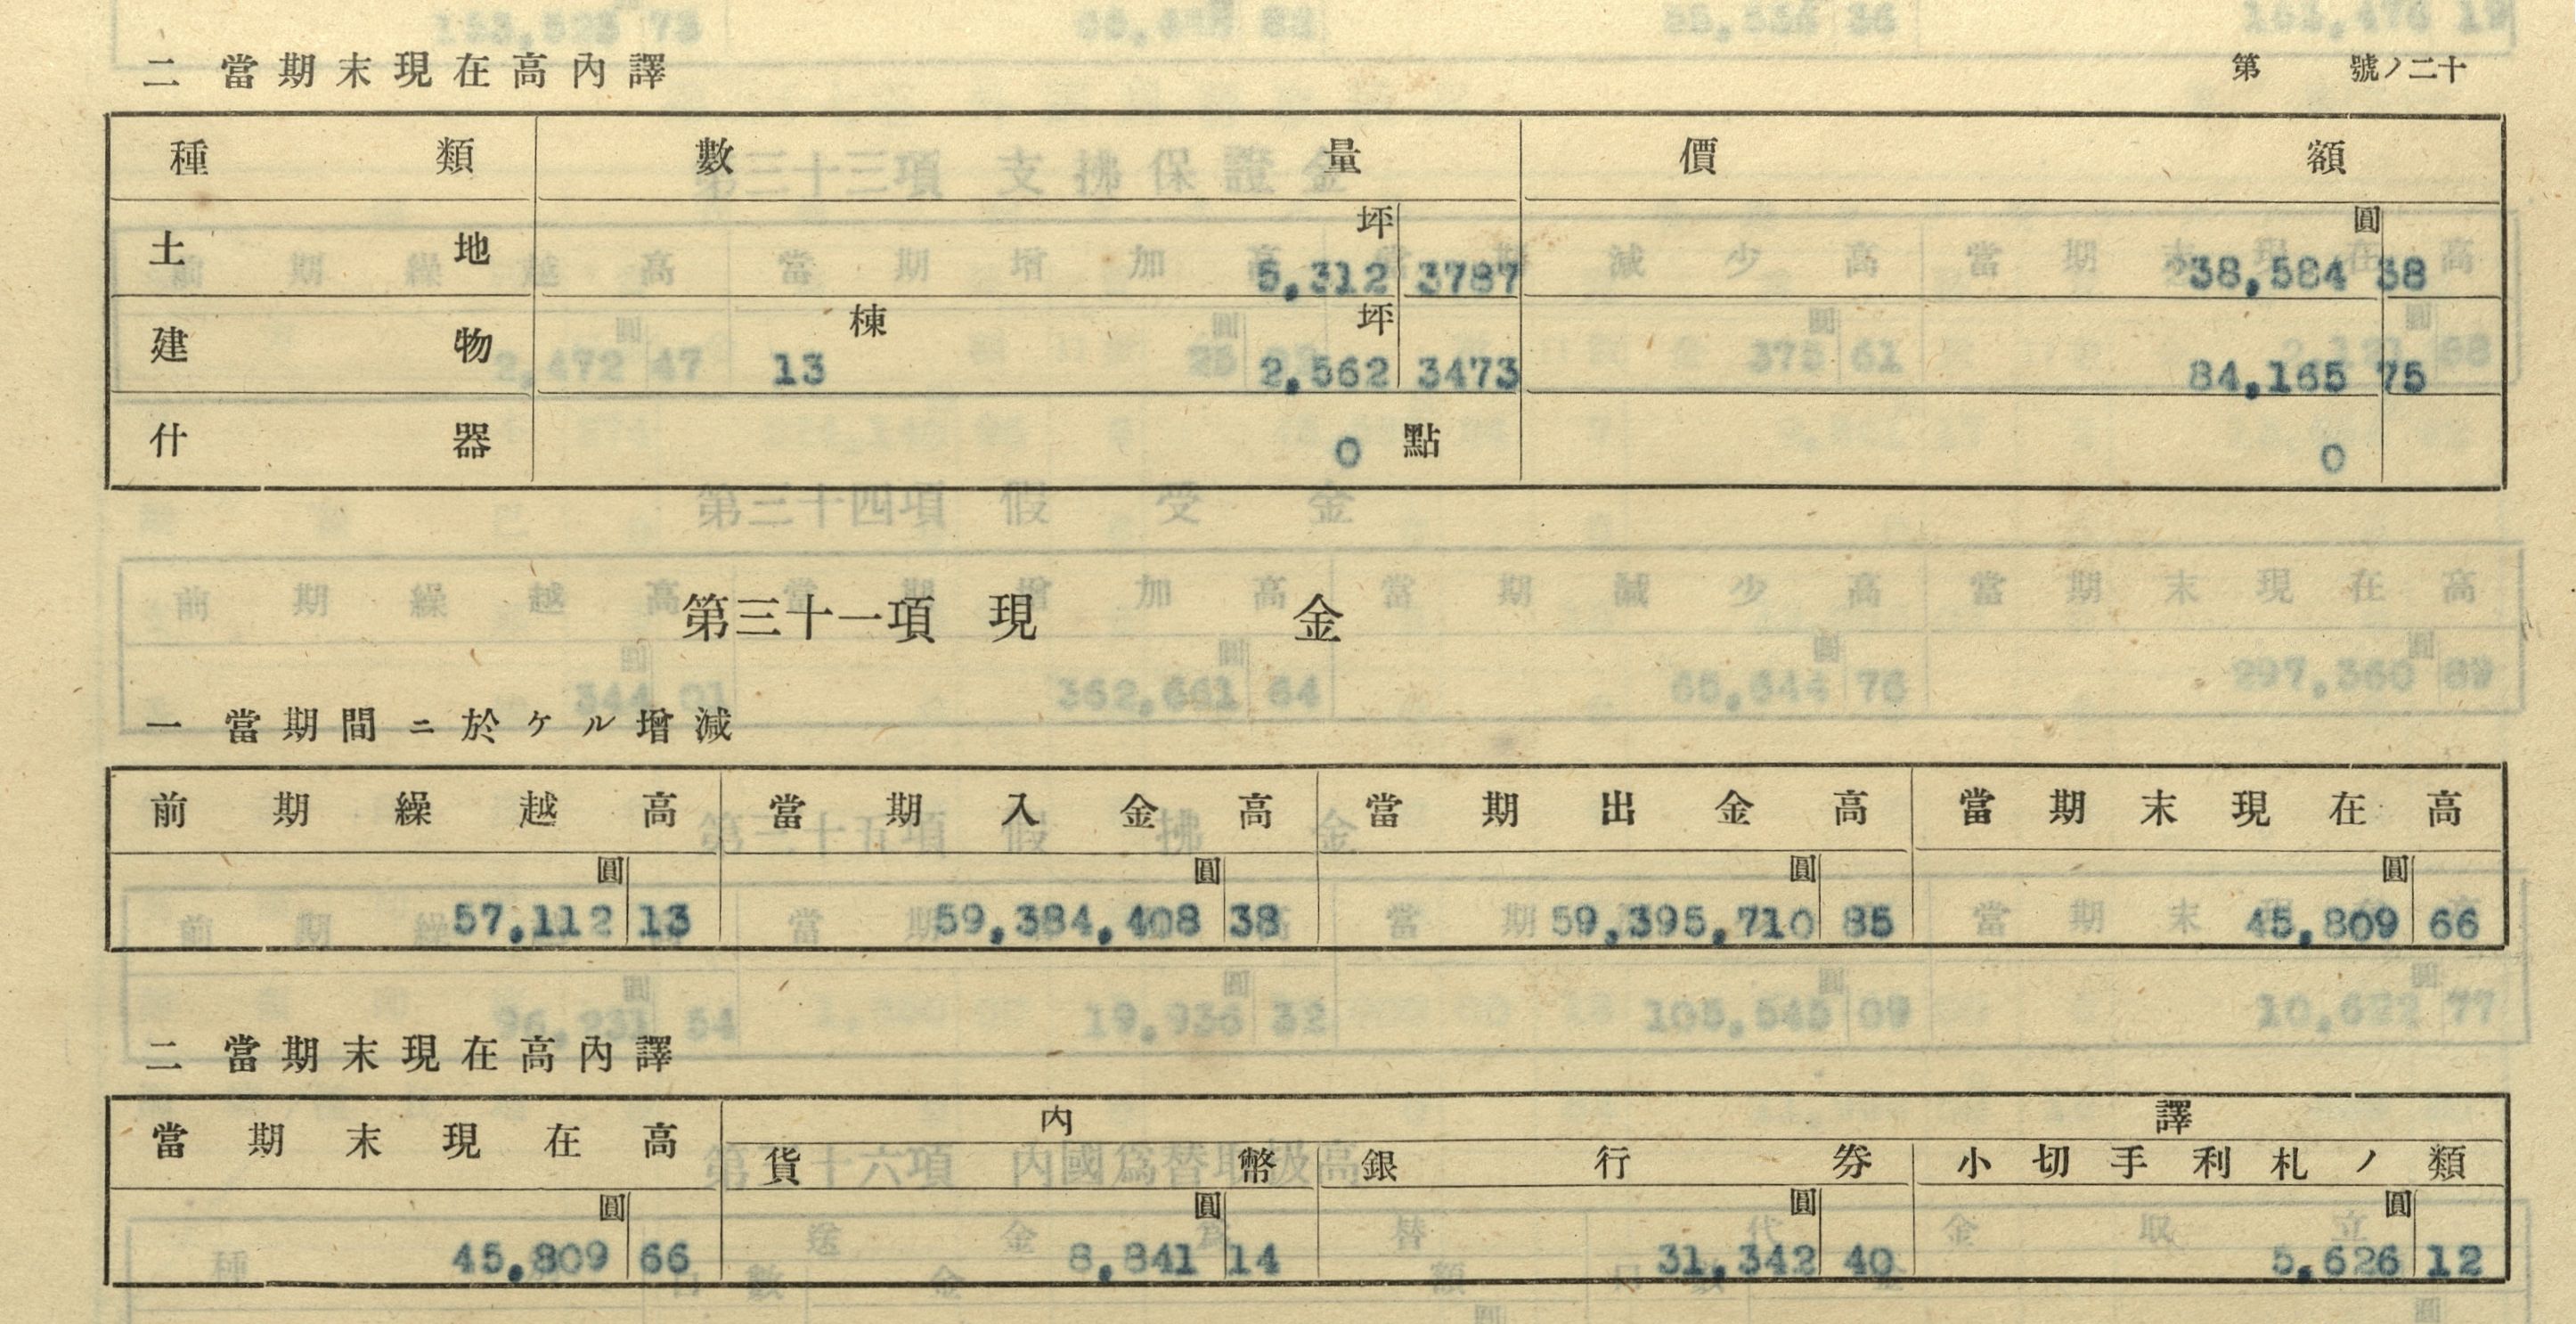 二 當期末現在高內譯 第 號ノ二十
種類 數量 價額
土地 坪 5,312 3787 圓 38,584 38
建物 棟 13 坪 2,562 3473 84,165 75
什器 0 點 0
第三十一項 現金
一 當期間ニ於ケル增減
前期繰越高 當期入金高 當期出金高 當期末現在高
圓 圓 圓 圓
57,112 13 59,384,408 38 59,395,710 85 45,809 66
二 當期末現在高內譯
當期末現在高 內譯
貨幣 銀行券 小切手利札ノ類
圓 圓 圓 圓
45,809 66 8,841 14 31,342 40 5,626 12